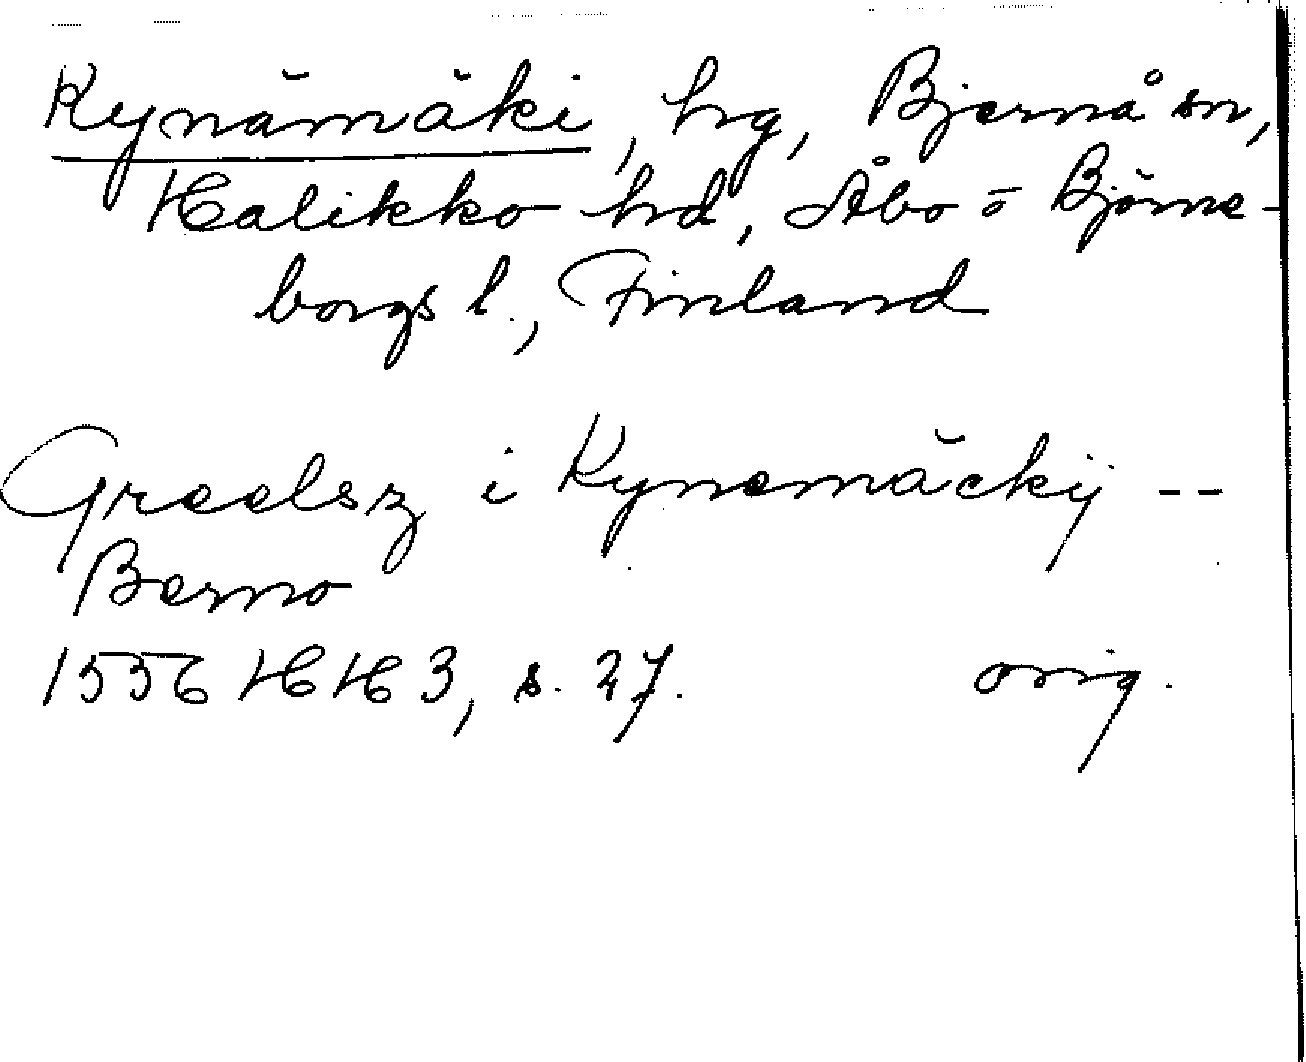 Kynämäki, hg, Bjernå sn,
Halikko hd, Åbo o Björne-
borgs l., Finland
Greelsz i Kynemäckij --
Berno
1556 HH 3, s. 27. orig.